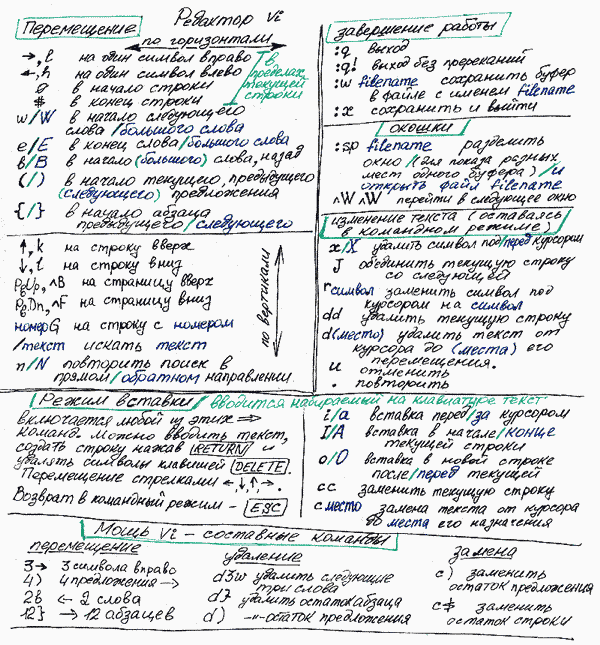 Редактор Vi
Перемещение
по горизонтали
→, l на один символ вправо
←, h на один символ влево
0 в начало строки
$ в конец строки
в пределах текущей строки
w/W в начало следующего
слова/большого слова
e/E в конец слова/большого слова
b/B в начало (большого) слова, назад
(/) в начало текущего, предыдущего
(следующего) предложения
{/} в начало абзаца
предыдущего/следующего
↑, k на строку вверх
↓, l на строку вниз
PgUp, ∧B на страницу вверх
PgDn, ∧F на страницу вниз
номерG на строку с номером
/текст искать текст
n/N повторить поиск в
прямом/обратном направлении
по вертикали
завершение работы
:q выход
:q! выход без пререканий
:w filename сохранить буфер
в файле с именем filename
:x сохранить и выйти
окошки
:sp filename разделить
окно/(для показа разных
мест одного буфера)/и
открыть файл filename
∧W ∧W перейти в следующее окно
изменение текста (оставаясь
в командном режиме)
x/X удалить символ под/перед курсором
J объединить текущую строку
со следующей
rсимвол заменить символ под
курсором на символ
dd удалить текущую строку
d(место) удалить текст от
курсора до (места) его
перемещения.
u отменить
. повторить
Режим вставки/вводится набираемый на клавиатуре текст
включается любой из этих ⇒
команд. Можно вводить текст,
создать строку нажав RETURN и
удалять символы клавишей DELETE.
Перемещение стрелками ←, ↓, ↑, →.
Возврат в командный режим - ESC
i/a вставка перед/за курсором
I/A вставка в начале/конце
текущей строки
o/O вставка в новой строке
после/перед текущей
cc заменить текущую строку
cместо замена текста от курсора
до места его назначения
Мощь Vi - составные команды
перемещение
3→ 3 символа вправо
4) 4 предложения →
2b ← 2 слова
12} → 12 абзацев
удаление
d3w удалить следующие
три слова
d} удалить остаток абзаца
d) -"- остаток предложения
замена
c) заменить
остаток предложения
c$ заменить
остаток строки